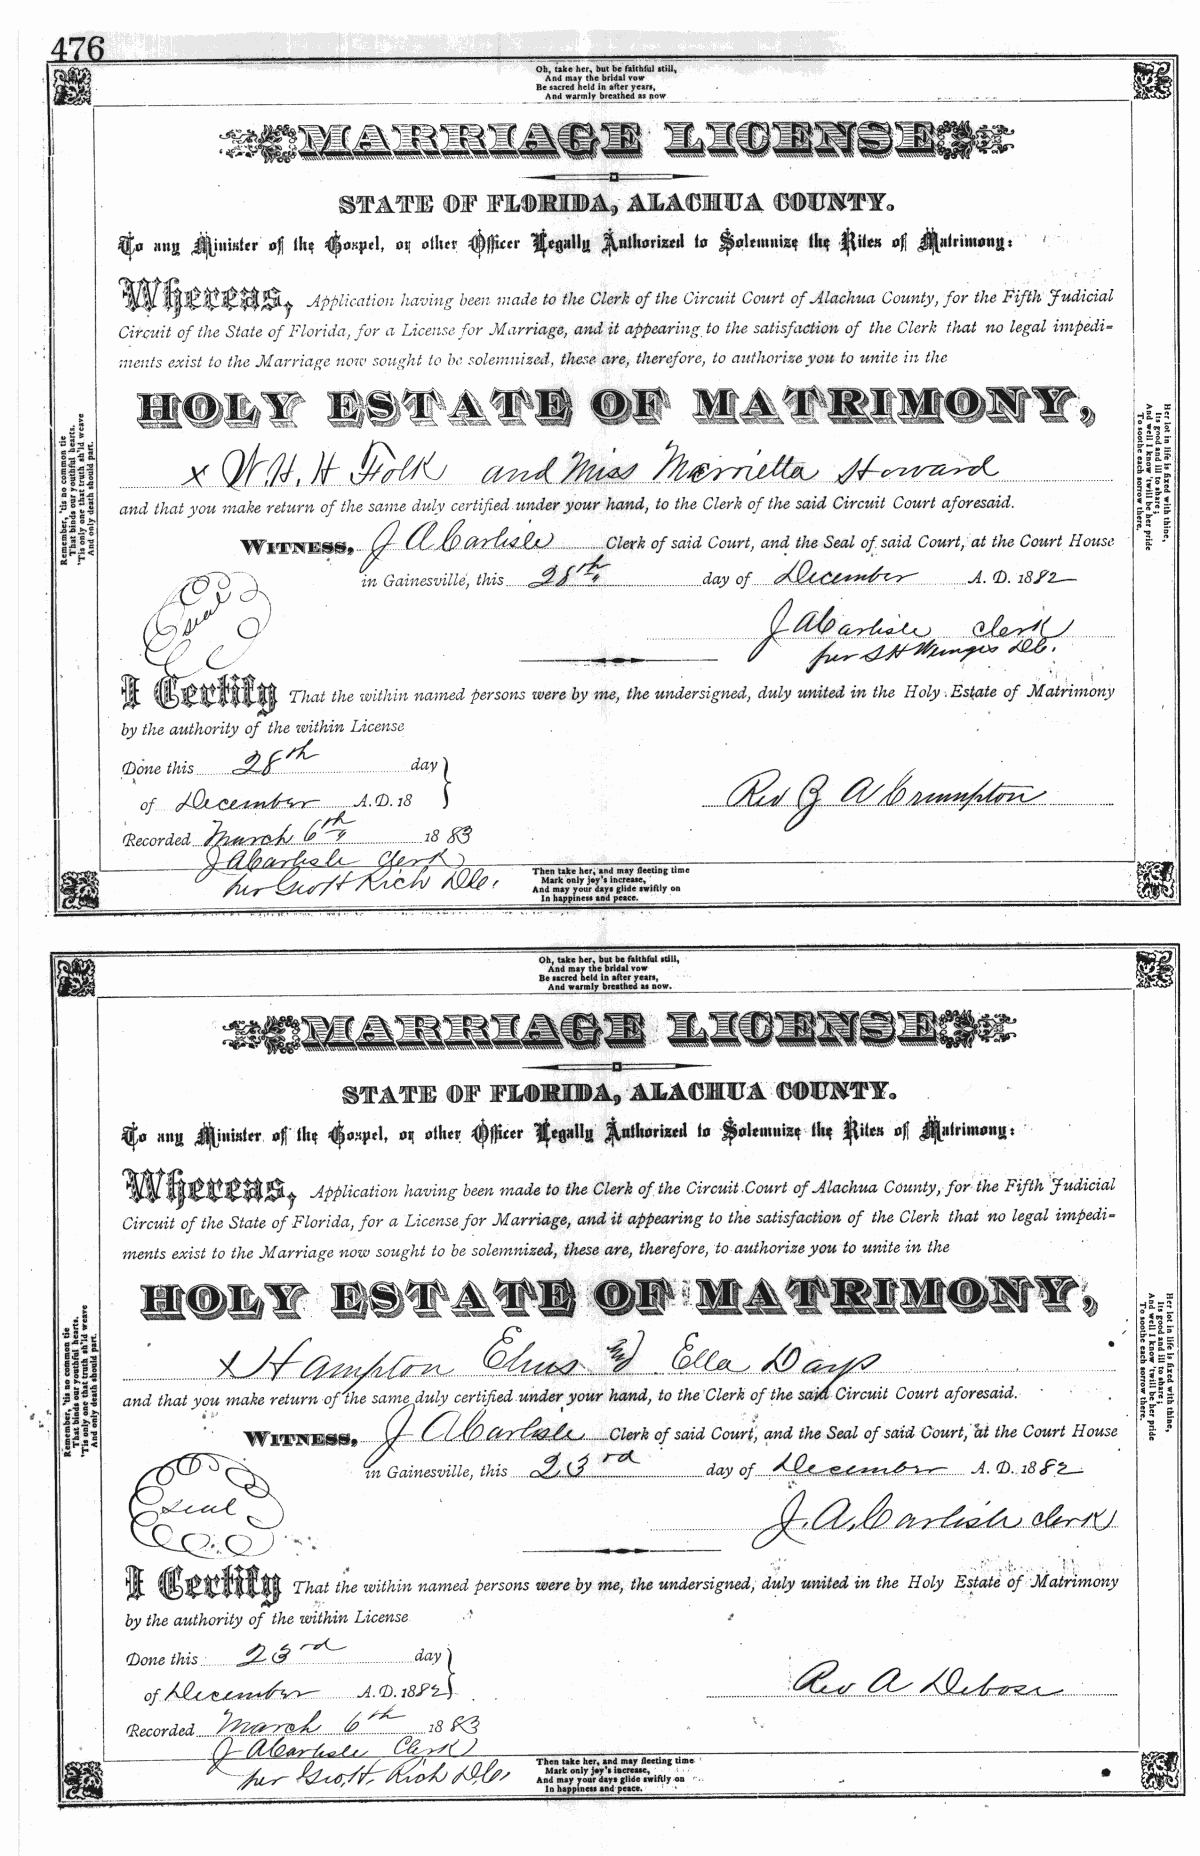 476
Oh, take her, but be faithful still,
And may the bridal vow
Be sacred held in after years,
And warmly breathed as now
MARRIAGE LICENSE
STATE OF FLORIDA, ALACHUA COUNTY.
To any Minister of the Gospel, or other Officer Legally Authorized to Solemnize the Rites of Matrimony:
Whereas, Application having been made to the Clerk of the Circuit Court of Alachua County, for the Fifth Judicial
Circuit of the State of Florida, for a License for Marriage, and it appearing to the satisfaction of the Clerk that no legal impedi-
ments exist to the Marriage now sought to be solemnized, these are, therefore, to authorize you to unite in the
HOLY ESTATE OF MATRIMONY,
x W. H. H Folk and Miss Merrietta Howard
and that you make return of the same duly certified under your hand, to the Clerk of the said Circuit Court aforesaid.
WITNESS, J A Carlisle Clerk of said Court, and the Seal of said Court, at the Court House
in Gainesville, this 28th day of December A. D. 1882
seal
J A Carlisle clerk
per S H D.C.
I Certify That the within named persons were by me, the undersigned, duly united in the Holy Estate of Matrimony
by the authority of the within License
Done this 28th day
of December A.D. 18
Rev G A Crumpton
Recorded March 6th 1883
J A Carlisle Clerk
per Geo H Rich D.C.
Remember, 'tis no common tie
That binds our youthful hearts,
'Tis only one that truth sh'ld weave
And only death should part.
Her lot in life is fixed with thine,
Its good and ill to share;
And well I know 'twill be her pride
To soothe each sorrow there.
Then take her, and may fleeting time
Mark only joy's increase,
And may your days glide swiftly on
In happiness and peace.
Oh, take her, but be faithful still,
And may the bridal vow
Be sacred held in after years,
And warmly breathed as now.
MARRIAGE LICENSE
STATE OF FLORIDA, ALACHUA COUNTY.
To any Minister of the Gospel, or other Officer Legally Authorized to Solemnize the Rites of Matrimony:
Whereas, Application having been made to the Clerk of the Circuit Court of Alachua County, for the Fifth Judicial
Circuit of the State of Florida, for a License for Marriage, and it appearing to the satisfaction of the Clerk that no legal impedi-
ments exist to the Marriage now sought to be solemnized, these are, therefore, to authorize you to unite in the
HOLY ESTATE OF MATRIMONY,
x Hampton and Ella Days
and that you make return of the same duly certified under your hand, to the Clerk of the said Circuit Court aforesaid.
WITNESS, J A Carlisle Clerk of said Court, and the Seal of said Court, at the Court House
in Gainesville, this 23rd day of December A. D. 1882
seal
J. A. Carlisle clerk
I Certify That the within named persons were by me, the undersigned, duly united in the Holy Estate of Matrimony
by the authority of the within License
Done this 23rd day
of December A.D. 1882
Rev A Debose
Recorded March 6th 1883
J A Carlisle Clerk
per Geo. H. Rich D.C.
Remember, 'tis no common tie
That binds our youthful hearts,
'Tis only one that truth sh'ld weave
And only death should part.
Her lot in life is fixed with thine,
Its good and ill to share;
And well I know 'twill be her pride
To soothe each sorrow there.
Then take her, and may fleeting time
Mark only joy's increase,
And may your days glide swiftly on
In happiness and peace.